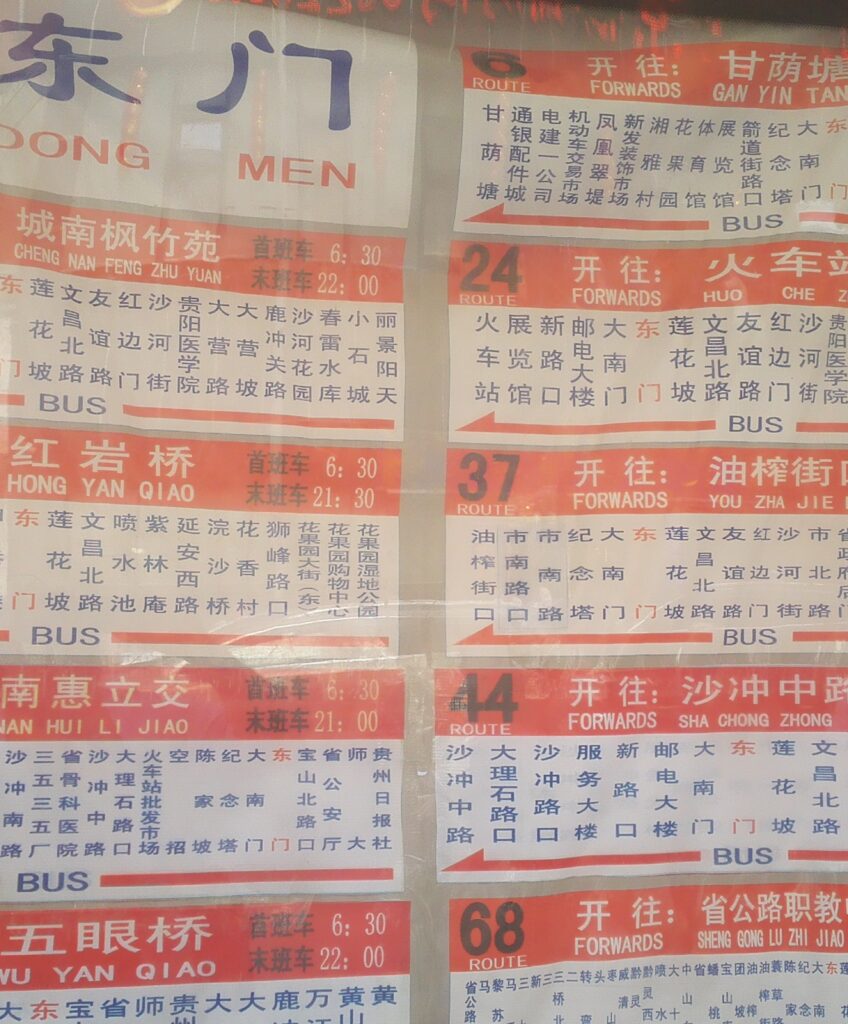 东门
DONG MEN
城南枫竹苑
CHENG NAN FENG ZHU YUAN
首班车 6:30
末班车 22:00
东门
莲花坡
文昌北路
友谊路
红边门
沙河街
贵阳医学院
大营路
大营坡
鹿冲关路
沙河花园
春雷水库
小石城
丽景阳天
BUS
红岩桥
HONG YAN QIAO
首班车 6:30
末班车 21:30
东门
莲花坡
文昌北路
喷水池
紫林庵
延安西路
浣沙桥
花香村
狮峰路口
花果园大街(东
花果园购物中心
花果园湿地公园
BUS
南惠立交
NAN HUI LI JIAO
首班车 6:30
末班车 21:00
沙冲南路
三五三五厂
省骨科医院
沙冲中路
大理石路口
火车站批发市场
空招
陈家坡
纪念塔
大南门
东门
宝山北路口
省公安厅
师大
贵州日报社
BUS
五眼桥
WU YAN QIAO
首班车 6:30
末班车 22:00
大 东 宝 省 师 贵 大 大 鹿 万 黄 黄
6
ROUTE
开往: 甘荫塘
FORWARDS GAN YIN TAN
甘荫塘
通银配件城
电建一公司
机动车交易市场
凤凰翠堤
新发装饰市场
湘雅村
花果园
体育馆
展览馆
箭道街路口
纪念塔
大南门
东门
BUS
24
ROUTE
开往: 火车站
FORWARDS HUO CHE Z
火车站
展览馆
新路口
邮电大楼
大南门
东门
莲花坡
文昌北路
友谊路
红边门
沙河街
贵阳医学院
BUS
37
ROUTE
开往: 油榨街口
FORWARDS YOU ZHA JIE
油榨街口
市南路口
市南路
纪念塔
大南门
东门
莲花坡
文昌北路
友谊路
红边门
沙河街
市北路
省政府后
BUS
44
ROUTE
开往: 沙冲中路
FORWARDS SHA CHONG ZHONG
沙冲中路
大理石路口
沙冲路口
服务大楼
新路口
邮电大楼
大南门
东门
莲花坡
文昌北路
BUS
68
ROUTE
开往: 省公路职教中
FORWARDS SHENG GONG LU ZHI JIAO